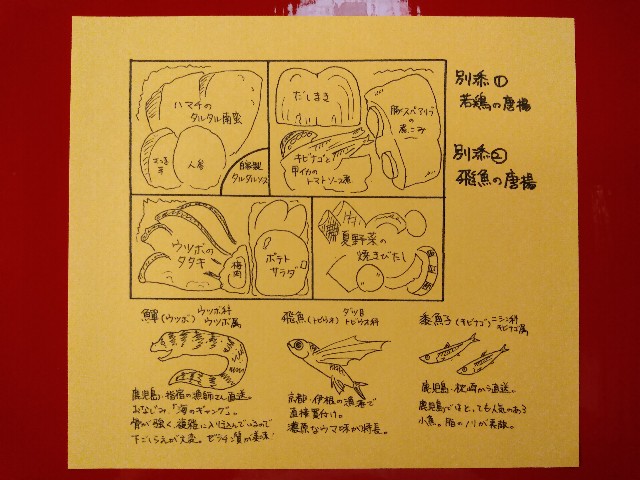 ハマチの
タルタル南蛮
さつま
芋
人参
自家製
タルタルソース
だしまき
キビナゴと
甲イカの
トマトソース煮
豚スペアリブ
の
煮こみ
別添①
若鶏の唐揚
別添②
飛魚の唐揚
ウツボの
タタキ
梅肉
ポテト
サラダ
夏野菜
の
焼きびたし
鱓(ウツボ) ウツボ科
ウツボ属
鹿児島・指宿の漁師さん直送。
おなじみ「海のギャング」。
骨が強く、複雑に入り込んでいるので
下ごしらえが大変。ゼラチン質が美味!
飛魚(トビウオ) ダツ目
トビウオ科
京都・伊根の漁港で
直接買付け。
濃厚なウマ味が特長。
黍魚子(キビナゴ) ニシン科
キビナゴ属
鹿児島・枕崎から直送。
鹿児島ではとっても人気のある
小魚。脂のノリが素敵。